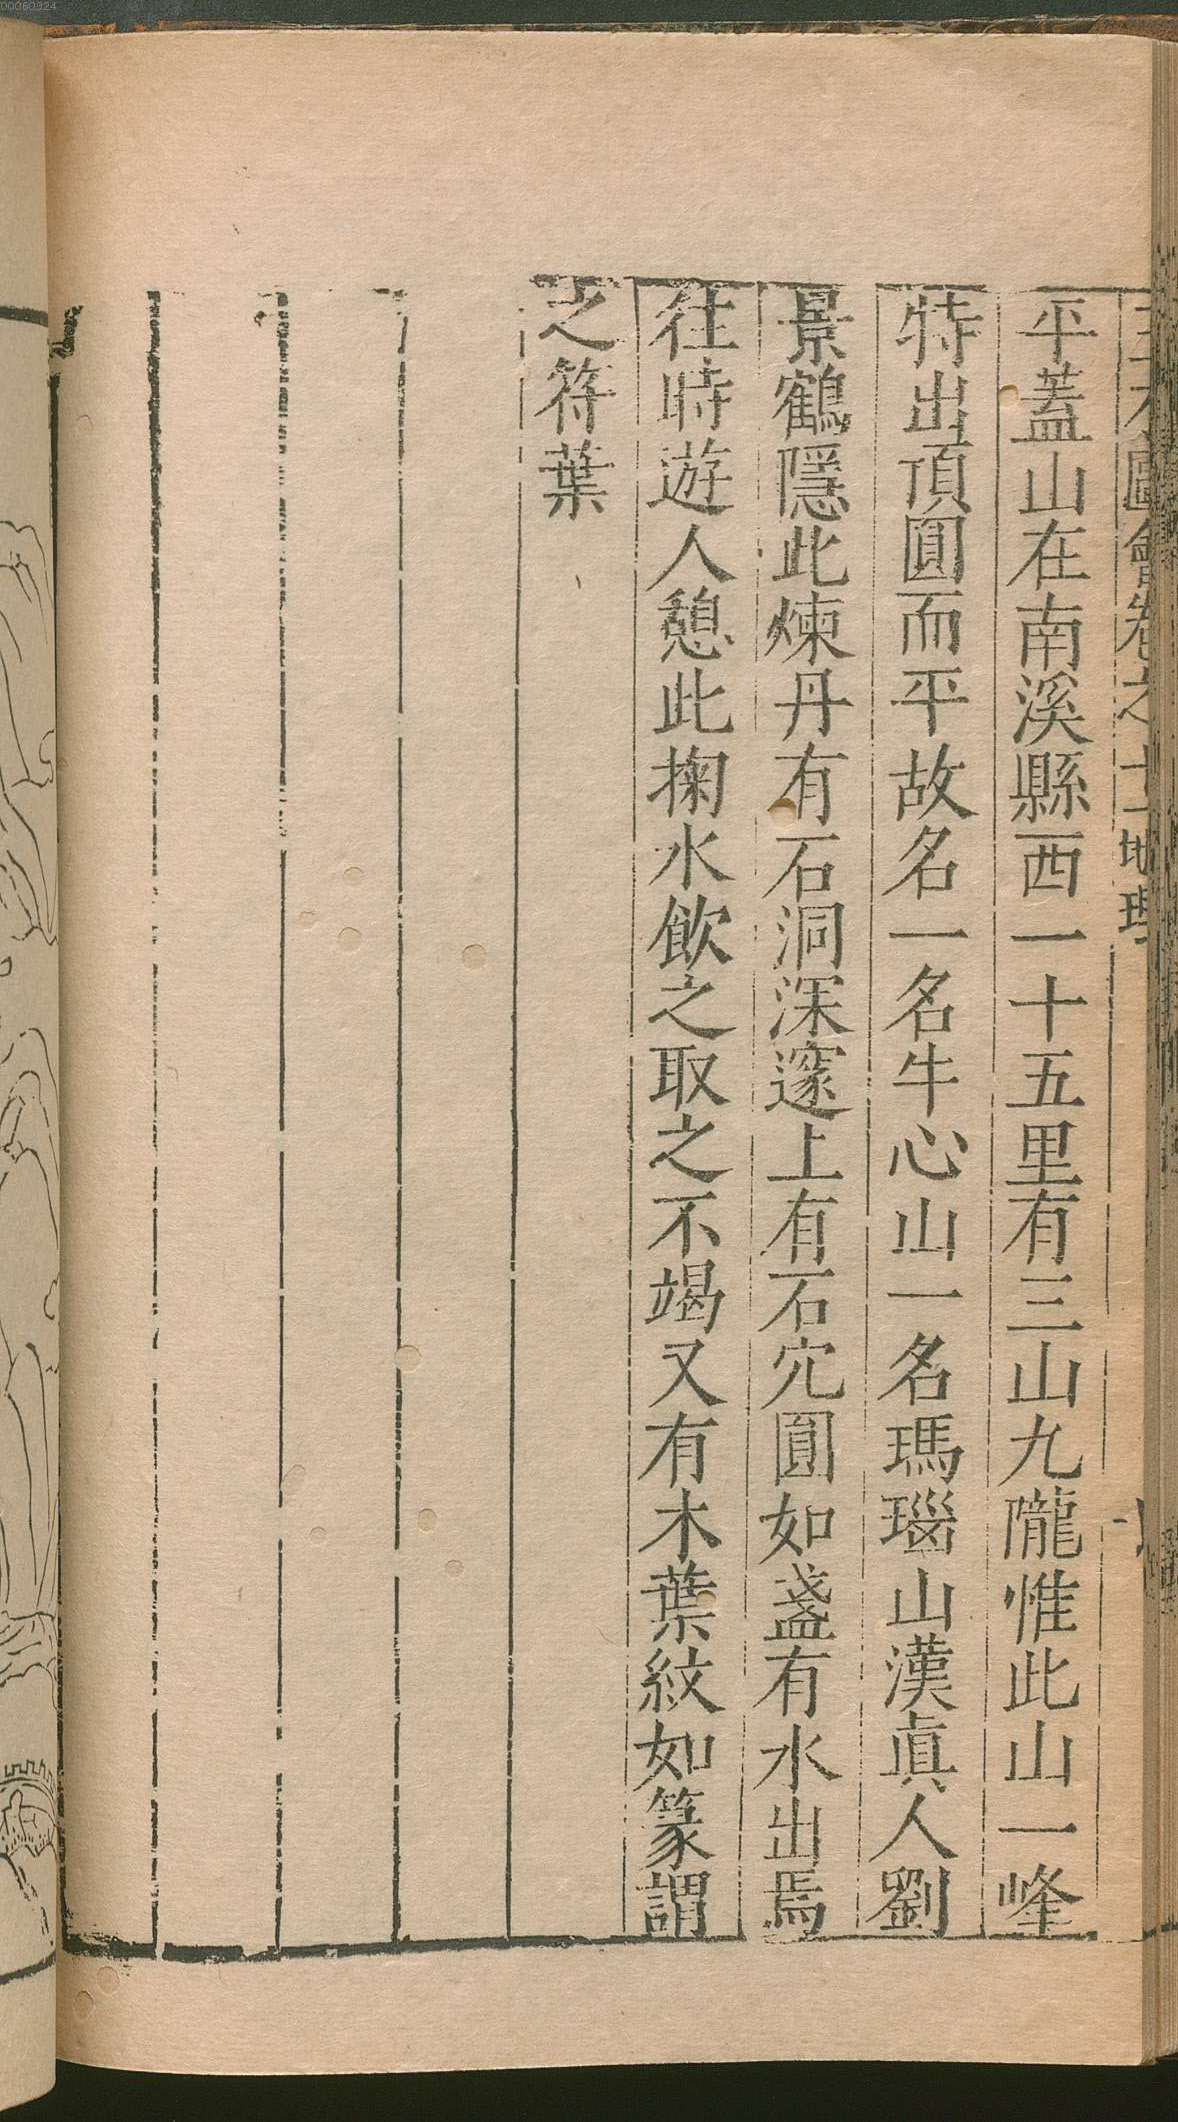 00060324
圖會卷之十一地理
平蓋山在南溪縣西一十五里有三山九隴惟此山一峰
特出頂圓而平故名一名牛心山一名瑪瑙山漢眞人劉
景鶴隱此煉丹有石洞深邃上有石穴圓如盞有水出焉
往時遊人憩此掬水飲之取之不竭又有木葉紋如篆謂
之符葉